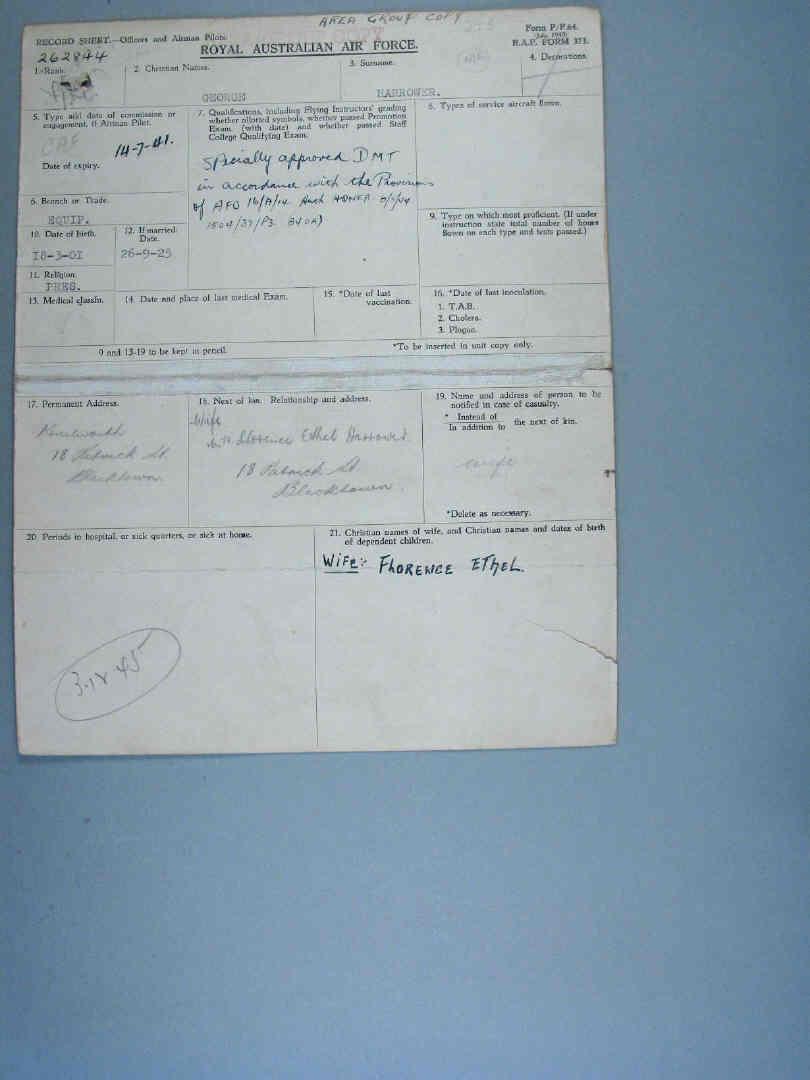 AREA GROUP COPY
Form P/P.64.
(July, 1940)
R.A.F. FORM 373.
RECORD SHEET.—Officers and Airman Pilots.
ROYAL AUSTRALIAN AIR FORCE.
262844
1. Rank.
2. Christian Names.
3. Surname.
4. Decorations.
GEORGE
HARROWER.
5. Type and date of commission or
engagement, if Airman Pilot.
14-7-41.
Date of expiry.
7. Qualifications, including Flying Instructors' grading
whether allotted symbols, whether passed Promotion
Exam. (with date) and whether passed Staff
College Qualifying Exam.
Specially approved DMT
in accordance with the Provisions
of AFO
8. Types of service aircraft flown.
6. Branch or Trade.
EQUIP.
9. Type on which most proficient. (If under
instruction state total number of hours
flown on each type and tests passed.)
10. Date of birth.
18-3-01
12. If married.
Date.
26-9-25
11. Religion.
PRES.
13. Medical classfn.
14. Date and place of last medical Exam.
15. *Date of last
vaccination.
16. *Date of last inoculation.
1. T.A.B.
2. Cholera.
3. Plague.
9 and 13-19 to be kept in pencil.
*To be inserted in unit copy only.
17. Permanent Address.
18
18. Next of kin. Relationship and address.
Wife
Florence Ethel Harrower.
18
Blacktown.
19. Name and address of person to be
notified in case of casualty.
* Instead of
In addition to the next of kin.
wife
*Delete as necessary.
20. Periods in hospital, or sick quarters, or sick at home.
21. Christian names of wife, and Christian names and dates of birth
of dependent children.
WIFE:- FLORENCE ETHEL.